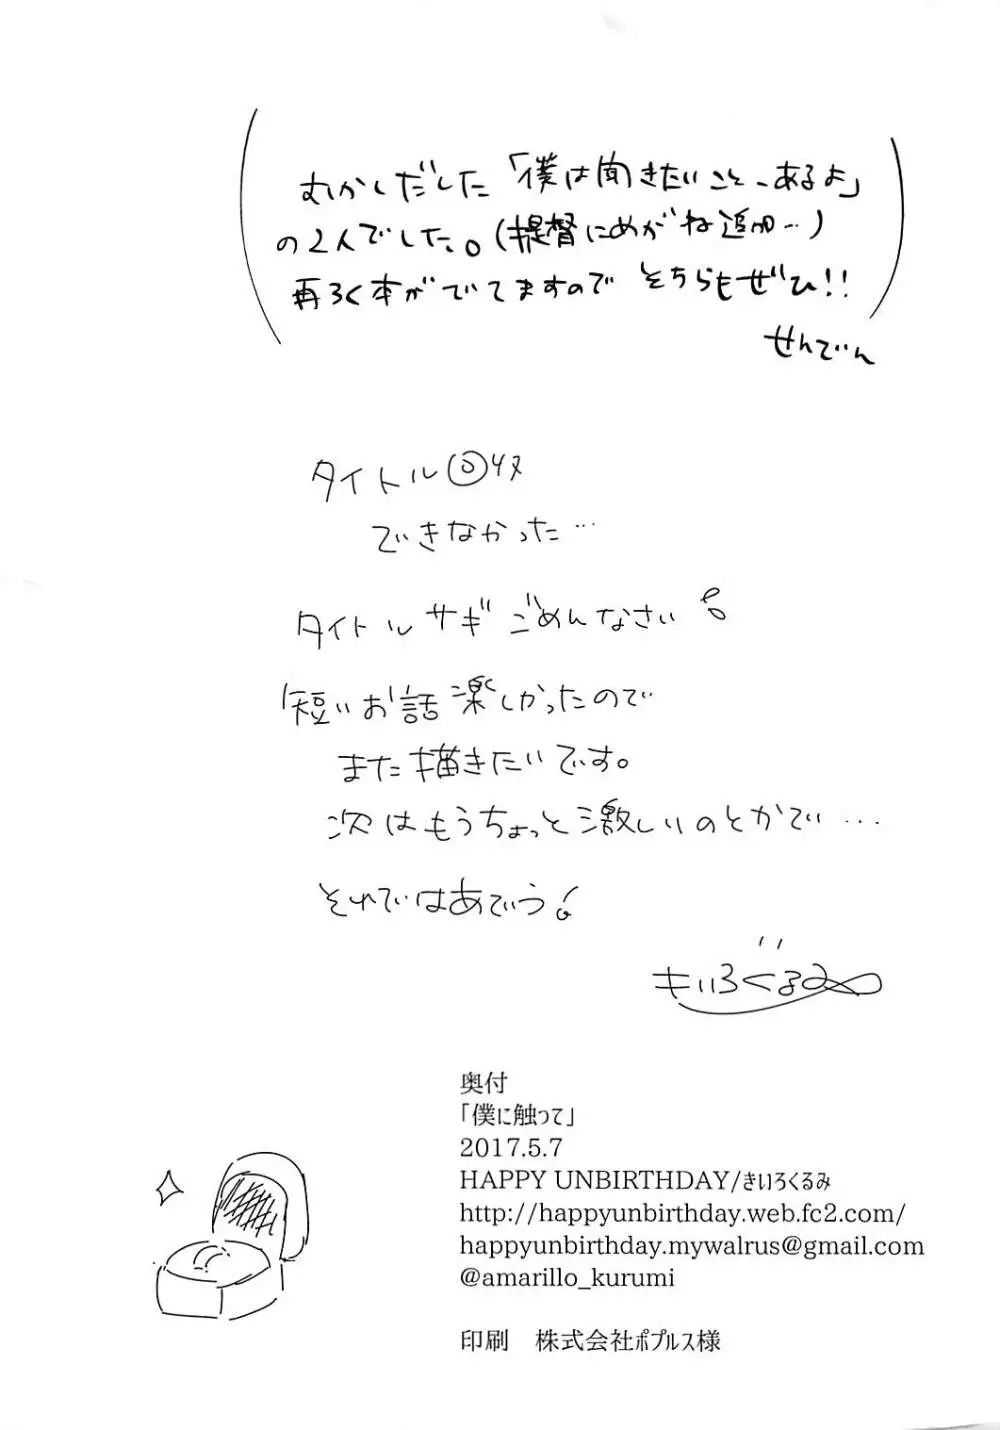 むかしだした「僕は聞きたいこと、あるよ」
の2人でした。(提督にめがね追加…)
再ろく本がでてますので そちらもぜひ!!
せんでん
タイトル
できなかった…
タイトルサギごめんなさい
短いお話楽しかったので
また描きたいです。
次はもうちょっと激しいのとかで…
それではあでぃう
きいろくるみ
奥付
「僕に触って」
2017.5.7
HAPPY UNBIRTHDAY/きいろくるみ
http://happyunbirthday.web.fc2.com/
happyunbirthday.mywalrus@gmail.com
@amarillo_kurumi
印刷　株式会社ポプルス様